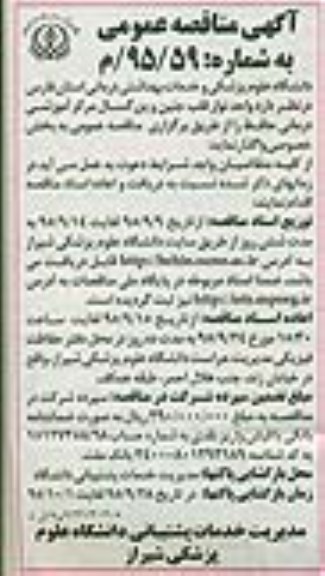 آگهی مناقصه عمومی
به شماره: ۹۵/۵۹/م
دانشگاه علوم پزشکی و خدمات بهداشتی درمانی استان فارس
در نظر دارد واحد نوار قلب جنین و بزرگسال مرکز آموزشی
درمانی حافظ را از طریق برگزاری مناقصه عمومی به بخش
خصوصی واگذار نماید.
از کلیه متقاضیان واجد شرایط دعوت به عمل می آید در
زمانهای ذکر شده نسبت به دریافت و اعاده اسناد مناقصه
اقدام نمایند:
توزیع اسناد مناقصه: از تاریخ ۹۸/۹/۹ لغایت ۹۸/۹/۱۴ به
مدت شش روز از طریق سایت دانشگاه علوم پزشکی شیراز
به آدرس قابل دریافت می
باشد. ضمنا اسناد مربوطه در پایگاه ملی مناقصات به آدرس
نیز ثبت گردیده است.
اعاده اسناد مناقصه: از تاریخ ۹۸/۹/۱۵ لغایت ساعت
مورخ به مدت روز در محل دفتر حفاظت
فیزیکی مدیریت حراست دانشگاه علوم پزشکی شیراز واقع
در خیابان زند، جنب هلال احمر، طبقه همکف.
مبلغ تضمین سپرده شرکت در مناقصه: سپرده شرکت در
مناقصه به مبلغ ریال به صورت ضمانتنامه
بانکی یا واریز نقدی به شماره حساب
به شناسه بانک ملت
محل بازگشایی پاکتها: مدیریت خدمات پشتیبانی دانشگاه
زمان بازگشایی پاکتها: در تاریخ لغایت
مدیریت خدمات پشتیبانی دانشگاه علوم
پزشکی شیراز